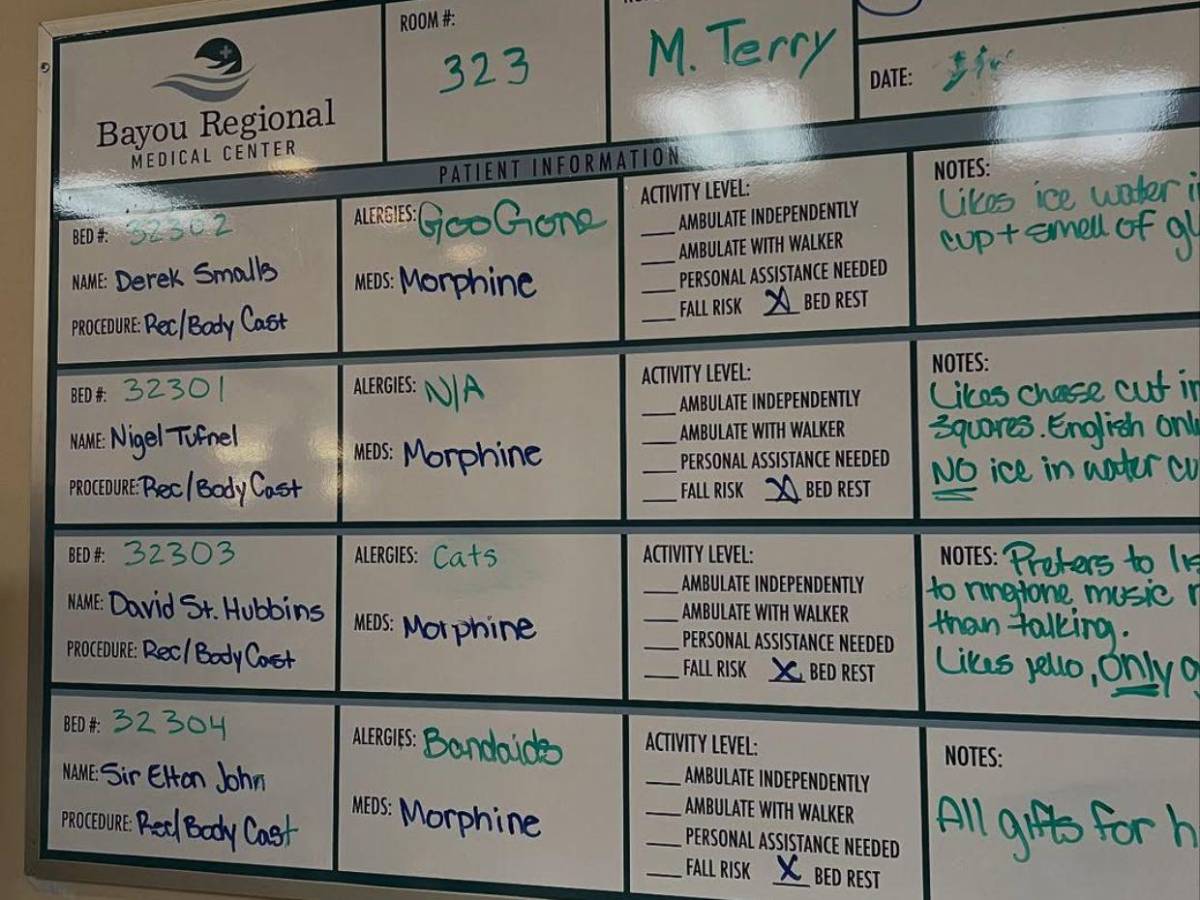 Bayou Regional
MEDICAL CENTER
ROOM #:
323
M. Terry
DATE:
PATIENT INFORMATION
BED #: 32302
NAME: Derek Smalls
PROCEDURE: Rec/Body Cast
ALERGIES: Goo Gone
MEDS: Morphine
ACTIVITY LEVEL:
___ AMBULATE INDEPENDENTLY
___ AMBULATE WITH WALKER
___ PERSONAL ASSISTANCE NEEDED
___ FALL RISK X BED REST
NOTES:
Likes ice water
cup + smell of
BED #: 32301
NAME: Nigel Tufnel
PROCEDURE: Rec/Body Cast
ALERGIES: N/A
MEDS: Morphine
ACTIVITY LEVEL:
___ AMBULATE INDEPENDENTLY
___ AMBULATE WITH WALKER
___ PERSONAL ASSISTANCE NEEDED
___ FALL RISK X BED REST
NOTES:
Likes chese cut in
squares. English only
NO ice in water
BED #: 32303
NAME: David St. Hubbins
PROCEDURE: Rec/Body Cast
ALERGIES: Cats
MEDS: Morphine
ACTIVITY LEVEL:
___ AMBULATE INDEPENDENTLY
___ AMBULATE WITH WALKER
___ PERSONAL ASSISTANCE NEEDED
___ FALL RISK X BED REST
NOTES: Prefers to
to ringtone music
than talking.
Likes jello, only
BED #: 32304
NAME: Sir Elton John
PROCEDURE: Rec/Body Cast
ALERGIES: Bandaids
MEDS: Morphine
ACTIVITY LEVEL:
___ AMBULATE INDEPENDENTLY
___ AMBULATE WITH WALKER
___ PERSONAL ASSISTANCE NEEDED
___ FALL RISK X BED REST
NOTES:
All gifts for